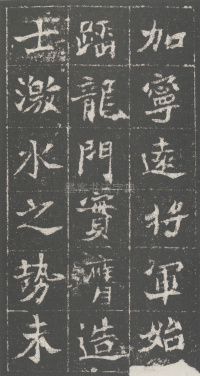 加寧遠将軍始
蹈龍門實膺造
士激水之勢未